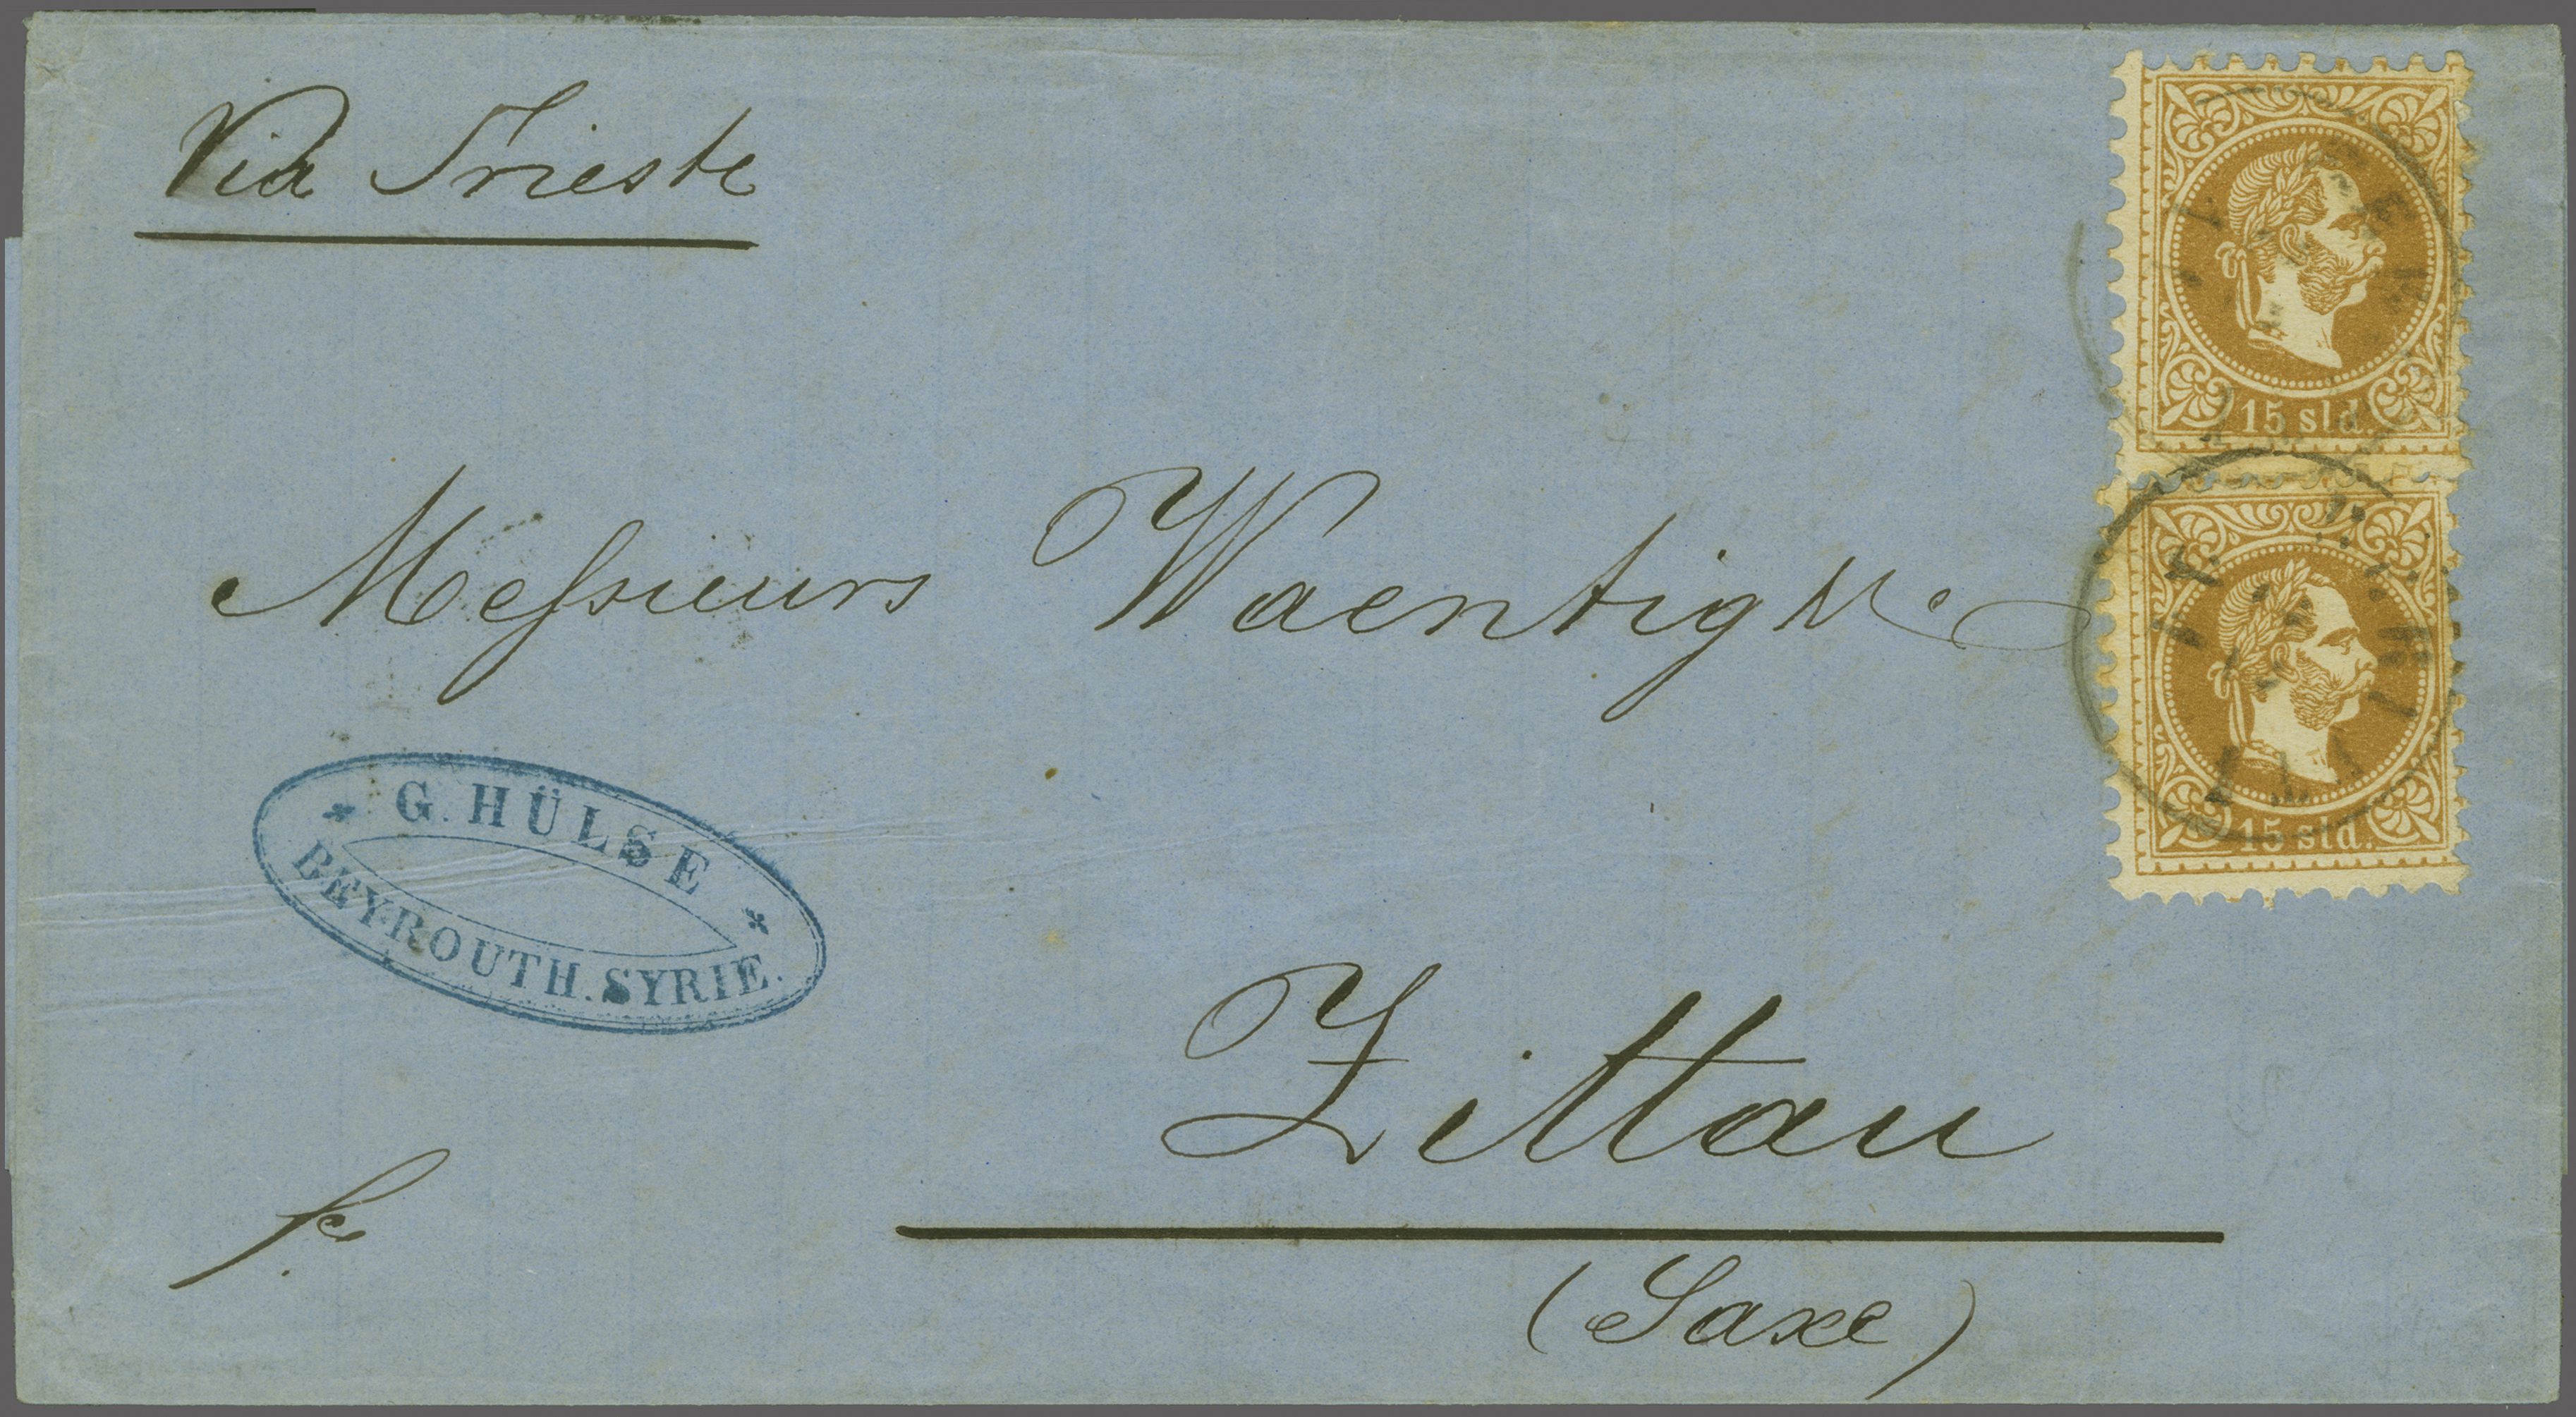 Via Trieste
15 sld.
Messieurs Waentig & Co
15 sld.
G. HÜLSE
BEYROUTH. SYRIE.
Zittau
(Saxe)